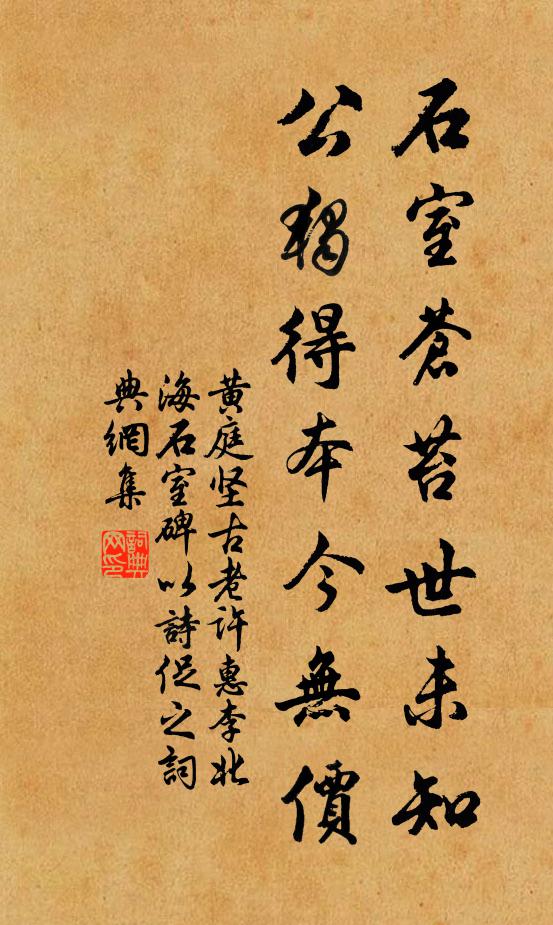 石室蒼苔世未知
公獨得本今無價
黄庭坚古老许惠李北
海石室碑以詩促之詞
典網集
詞典
网印